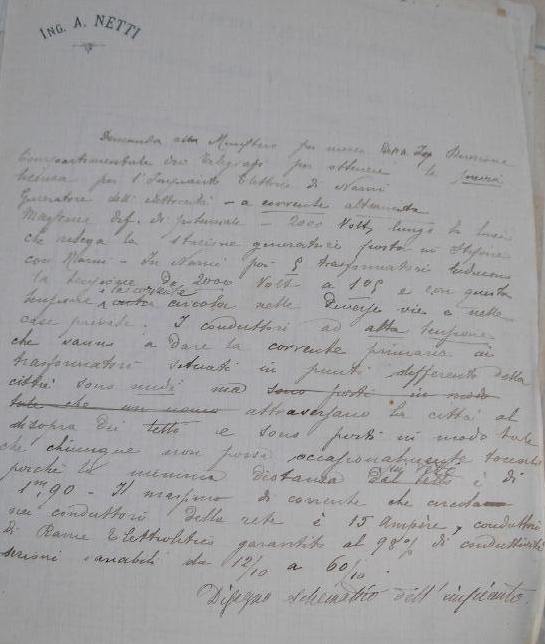 ING. A. NETTI
Domanda alla Ministero per mezzo Della Direzione
Compartimentale dei Telegrafi per ottenere la
licenza per l'Impianto Elettrico di Narni
Generatore dell'elettricità - a corrente alternata
Massima dif. di potenziale - 2000 Volts lungo la linea
che collega la stazione generatrice posta in Stifone
con Narni - In Narni poi 5 trasformatori riducono
la tensione da 2000 Volts a 105 e con questa
tensione la corrente circola nelle diverse vie e nelle
case private. I conduttori ad alta tensione
che vanno a dare la corrente primaria ai
trasformatori situati in punti differenti della
città sono nudi ma sono posti in modo
tale che un uomo attraversano la città al
disopra dei tetti e sono posti in modo tale
che chiunque non possa occasionalmente toccarli
perché la minima distanza dal tetto è di
1m,90 - Il massimo di corrente che circola
nei conduttori della rete è 15 Ampère, conduttori
di Rame Elettrolitico garantito al 98% di conduttività
sezioni variabili da 12/10 a 60/10.
Disegno schematico dell'impianto.